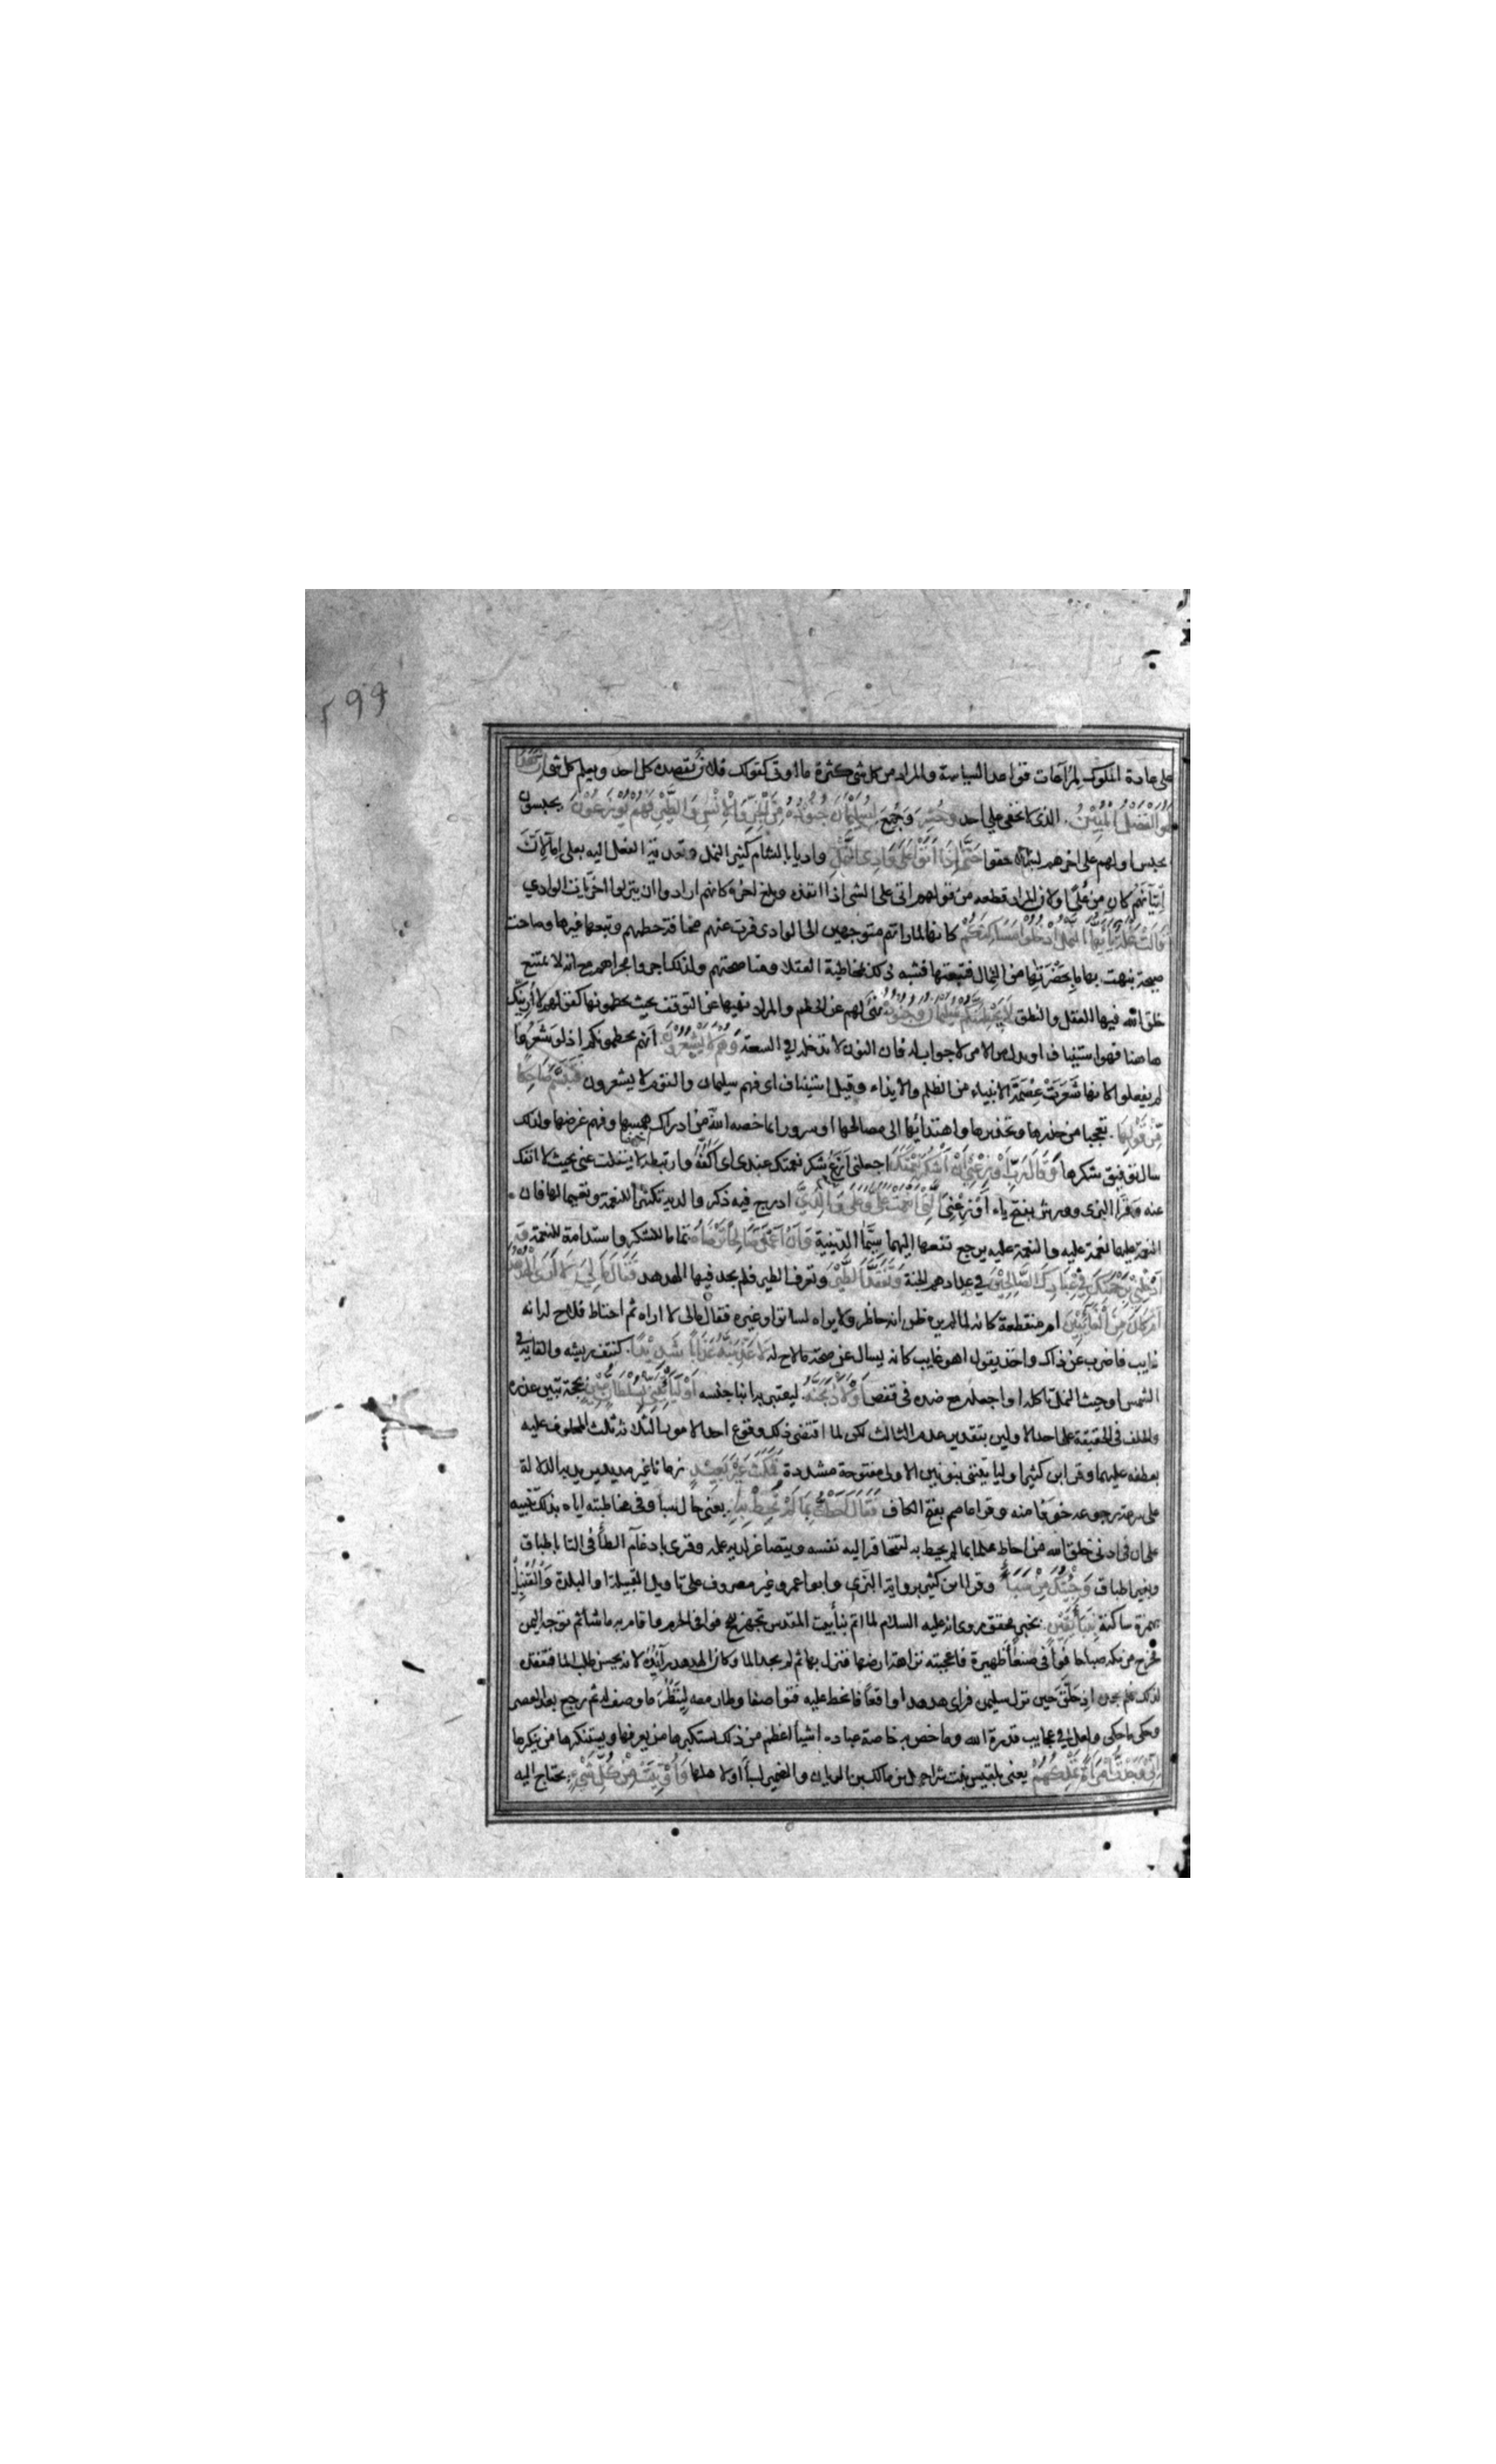 ۲۹۹
على عادة الملوك لمراعات قواعد السياسة والمراد من كل شى كثرة ما اوتى كقولك فلان يقصده كل احد ويعلم كل شى ان هذا
لهو الفضل المبين الذى لا يخفى على احد وحشر وجمع لسليمان جنوده من الجن والانس والطير فهم يوزعون يحبسون
بحبس اولهم على اخرهم ليتلاحقوا حتى اذا اتوا على وادى النمل واديا بالشام كثير النمل وتعدية الفعل اليه بعلى اما لان
اتيانهم كان من عل او لان المراد قطعه من قولهم اتى على الشى اذا انفذه وبلغ اخره كانهم ارادوا ان ينزلوا اخريات الوادي
قالت نملة يا ايها النمل ادخلوا مساكنكم كانها لما راتهم متوجهين الى الوادى فرت عنهم مخافة حطمهم وتبعها غيرها وصاحت
صيحة نبهت بها ما بحضرتها من النمال فتبعتها فشبه ذلك بمخاطبة العقلا ومناصحتهم ولذلك اجروا مجراهم مع انه لا يمتنع
خلق الله فيها العقل والنطق لا يحطمنكم سليمان وجنوده نهى لهم عن الحطم والمراد نهيها عن التوقف بحيث يحطمونها كقولهم لا ارينك
هاهنا فهو استيناف او بدل من الامر لا جواب له فان النون لا تدخله فى السعة وهم لا يشعرون انهم يحطمونكم اذ لو شعروا
لم يفعلوا كانها شعرت عصمة الانبياء من الظلم والايذاء وقيل استيناف اى فهم سليمان والقوم لا يشعرون فتبسم ضاحكا
من قولها تعجبا من حذرها وتحذيرها واهتدائها الى مصالحها او سرورا بما خصه الله من ادراك همسها وفهم غرضها ولذلك
سال توفيق شكرها وقال رب اوزعني ان اشكر نعمتك اجعلنى ازع شكر نعمتك عندى اى اكفه وارتبطه لا ينفلت عنى بحيث لا انفك
عنه وقرا البزى وورش بفتح ياء اوزعني التى انعمت على وعلى والدي ادرج فيه ذكر والديه تكثيرا للنعمة وتعميما لها فان
النعمة عليهما نعمة عليه والنعمة عليه يرجع نفعها اليهما سيما الدينية وان اعمل صالحا ترضاه تماما للشكر واستدامة للنعمة و
ادخلني برحمتك في عبادك الصالحين في عدادهم الجنة وتفقد الطير وتعرف الطير فلم يجد فيها الهدهد فقال ما لي لا ارى الهدهد
ام كان من الغائبين ام منقطعة كانه لما لم يره ظن انه حاظر ولا يراه لساتر او غيره فقال مالى لا اراه ثم احتاط فلاح له انه
غايب فاضرب عن ذاك واخذ يقول اهو غايب كانه يسال عن صحة ما لاح له لاعذبنه عذابا شديدا كنتف ريشه والقايه في
الشمس او حيث النمل تاكله او اجعله مع ضده فى قفص او لاذبحنه ليعتبر به ابنا جنسه او ليأتيني بسلطان مبين بحجة تبين عذره
والحلف فى الحقيقة على احد الاولين بتقدير عدم الثالث لكن لما اقتضى ذلك وقوع احد الامور الثلاثة ثلث المحلوف عليه
بعطفه عليهما وقرا ابن كثير او ليأتينني بنونين الاولى مفتوحة مشددة فمكث غير بعيد زمانا غير مديد يريد به الدلالة
على سرعة رجوعه خوفا منه وقرا عاصم بفتح الكاف فقال احطت بما لم تحط به يعنى حال سبا وفى مخاطبته اياه بذلك تنبيه
على ان فى ادنى خلق الله من احاط علما بما لم يحط به لتتحاقر اليه نفسه ويتصاغر لديه علمه وقرى بادغام الطا فى التا باطباق
وبغير اطباق وجئتك من سبأ وقرا ابن كثير برواية البزي وابو عمرو غير مصروف على تاويل القبيلة او البلدة والقنبل
بهمزة ساكنة بنبأ يقين بخبر محقق روى انه عليه السلام لما اتم بنا بيت المقدس تجهز للحج فوافى الحرم واقام به ما شا ثم توجه اليمن
فخرج من مكة صباحا فوافى صنعا ظهيرة فاعجبته نزاهة ارضها فنزل بها ثم لم يجد الما وكان الهدهد رائده لانه يحسن طلب الما فتفقده
لذلك فلم يجده اذ حلق حين نزل سليمن فراى هدهدا واقعا فانحط عليه فتواصفا وطار معه لينظر ما وصف له ثم رجع بعد العصر
وحكى ما حكى ولعل في عجايب قدرة الله وما خص به خاصة عباده اشيا اعظم من ذلك يستكبرها من يعرفها ويستنكرها من ينكرها
اني وجدت امرأة تملكهم يعنى بلقيس بنت شراحيل بن مالك بن الريان والضمير لسبأ او لاهلها واوتيت من كل شيء يحتاج اليه